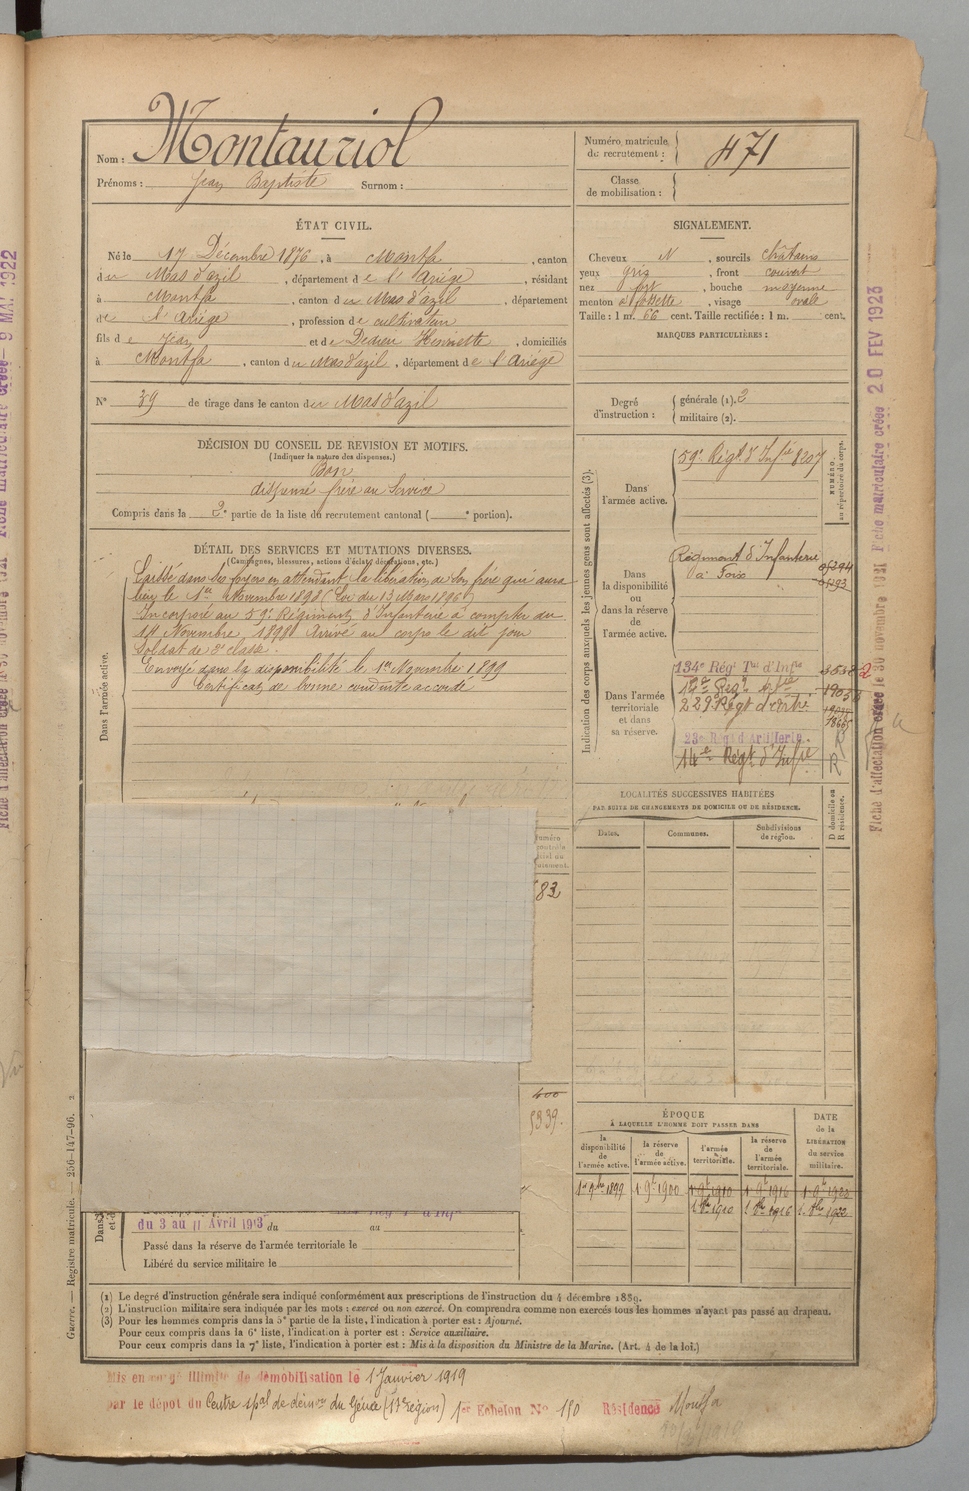 Nom : Montauriol
Prénoms : Jean Baptiste Surnom :
Numéro matricule de recrutement : 471
Classe de mobilisation :
ÉTAT CIVIL.
Né le 17 Décembre 1876, à Montfa, canton
du Mas d'azil, département de l'Ariège, résidant
à Montfa, canton du Mas d'azil, département
de l'Ariège, profession de cultivateur
fils de Jean et de Dedieu Henriette, domiciliés
à Montfa, canton du Mas d'azil, département de l'Ariège
N° 39 de tirage dans le canton du Mas d'azil
SIGNALEMENT.
Cheveux N, sourcils châtains
yeux gris, front couvert
nez fort, bouche moyenne
menton à fossette, visage ovale
Taille : 1 m. 66 cent. Taille rectifiée : 1 m. cent.
MARQUES PARTICULIÈRES :
Degré d'instruction : générale (1). 2
militaire (2).
DÉCISION DU CONSEIL DE REVISION ET MOTIFS.
(Indiquer la nature des dispenses.)
Bon
dispensé frère au Service
Compris dans la 2e partie de la liste du recrutement cantonal ( e portion).
DÉTAIL DES SERVICES ET MUTATIONS DIVERSES.
(Campagnes, blessures, actions d'éclat, décorations, etc.)
Dans l'armée active.
Laissé dans ses foyers en attendant la libération de son frère qui aura
lieu le 1er Novembre 1898 (Loi du 13 Mars 1896)
Incorporé au 59e Régiment d'Infanterie à compter du
14 Novembre 1898 Arrivé au corps le dit jour
Soldat de 2e classe.
Envoyé dans la disponibilité le 1er Novembre 1899
Certificat de bonne conduite accordé
Indication des corps auxquels les jeunes gens sont affectés (3).
NUMÉRO au répertoire du corps.
Dans l'armée active.
59e Régt d'Infie 8207
Dans la disponibilité ou dans la réserve de l'armée active.
Régiment d'Infanterie
à Foix
Dans l'armée territoriale et dans sa réserve.
134e Régt Tal d'Infie
23e Régt d'Artillerie
14e Régt d'Infie
R
LOCALITÉS SUCCESSIVES HABITÉES
PAR SUITE DE CHANGEMENTS DE DOMICILE OU DE RÉSIDENCE.
Dates. Communes. Subdivisions de région. D domicile ou R résidence.
83
400
5339.
ÉPOQUE
À LAQUELLE L'HOMME DOIT PASSER DANS
la disponibilité de l'armée active. la réserve de l'armée active. l'armée territoriale. la réserve de l'armée territoriale.
DATE de la LIBÉRATION du service militaire.
1er 9bre 1899 1 9b 1900 1 9b 1910 1 9b 1916 1 9b 1923
1 8bre 1910 1 8bre 1916 1 8bre 1922
du 3 au 11 Avril 1913 du au
Passé dans la réserve de l'armée territoriale le
Libéré du service militaire le
(1) Le degré d'instruction générale sera indiqué conformément aux prescriptions de l'instruction du 4 décembre 1889.
(2) L'instruction militaire sera indiquée par les mots : exercé ou non exercé. On comprendra comme non exercés tous les hommes n'ayant pas passé au drapeau.
(3) Pour les hommes compris dans la 5e partie de la liste, l'indication à porter est : Ajourné.
Pour ceux compris dans la 6e liste, l'indication à porter est : Service auxiliaire.
Pour ceux compris dans la 7e liste, l'indication à porter est : Mis à la disposition du Ministre de la Marine. (Art. 4 de la loi.)
Mis en congé illimité de démobilisation le 1 Janvier 1919
par le dépot du Centre spal de démon du Génie (17e région) 1er Echelon N° 150 Résidence Montfa
Guerre. — Registre matricule. — 256-147-96. 2
Fiche d'affectation créée le 30 novembre 1921 Fiche matriculaire créée 20 FEV 1923
9 MAI 1922